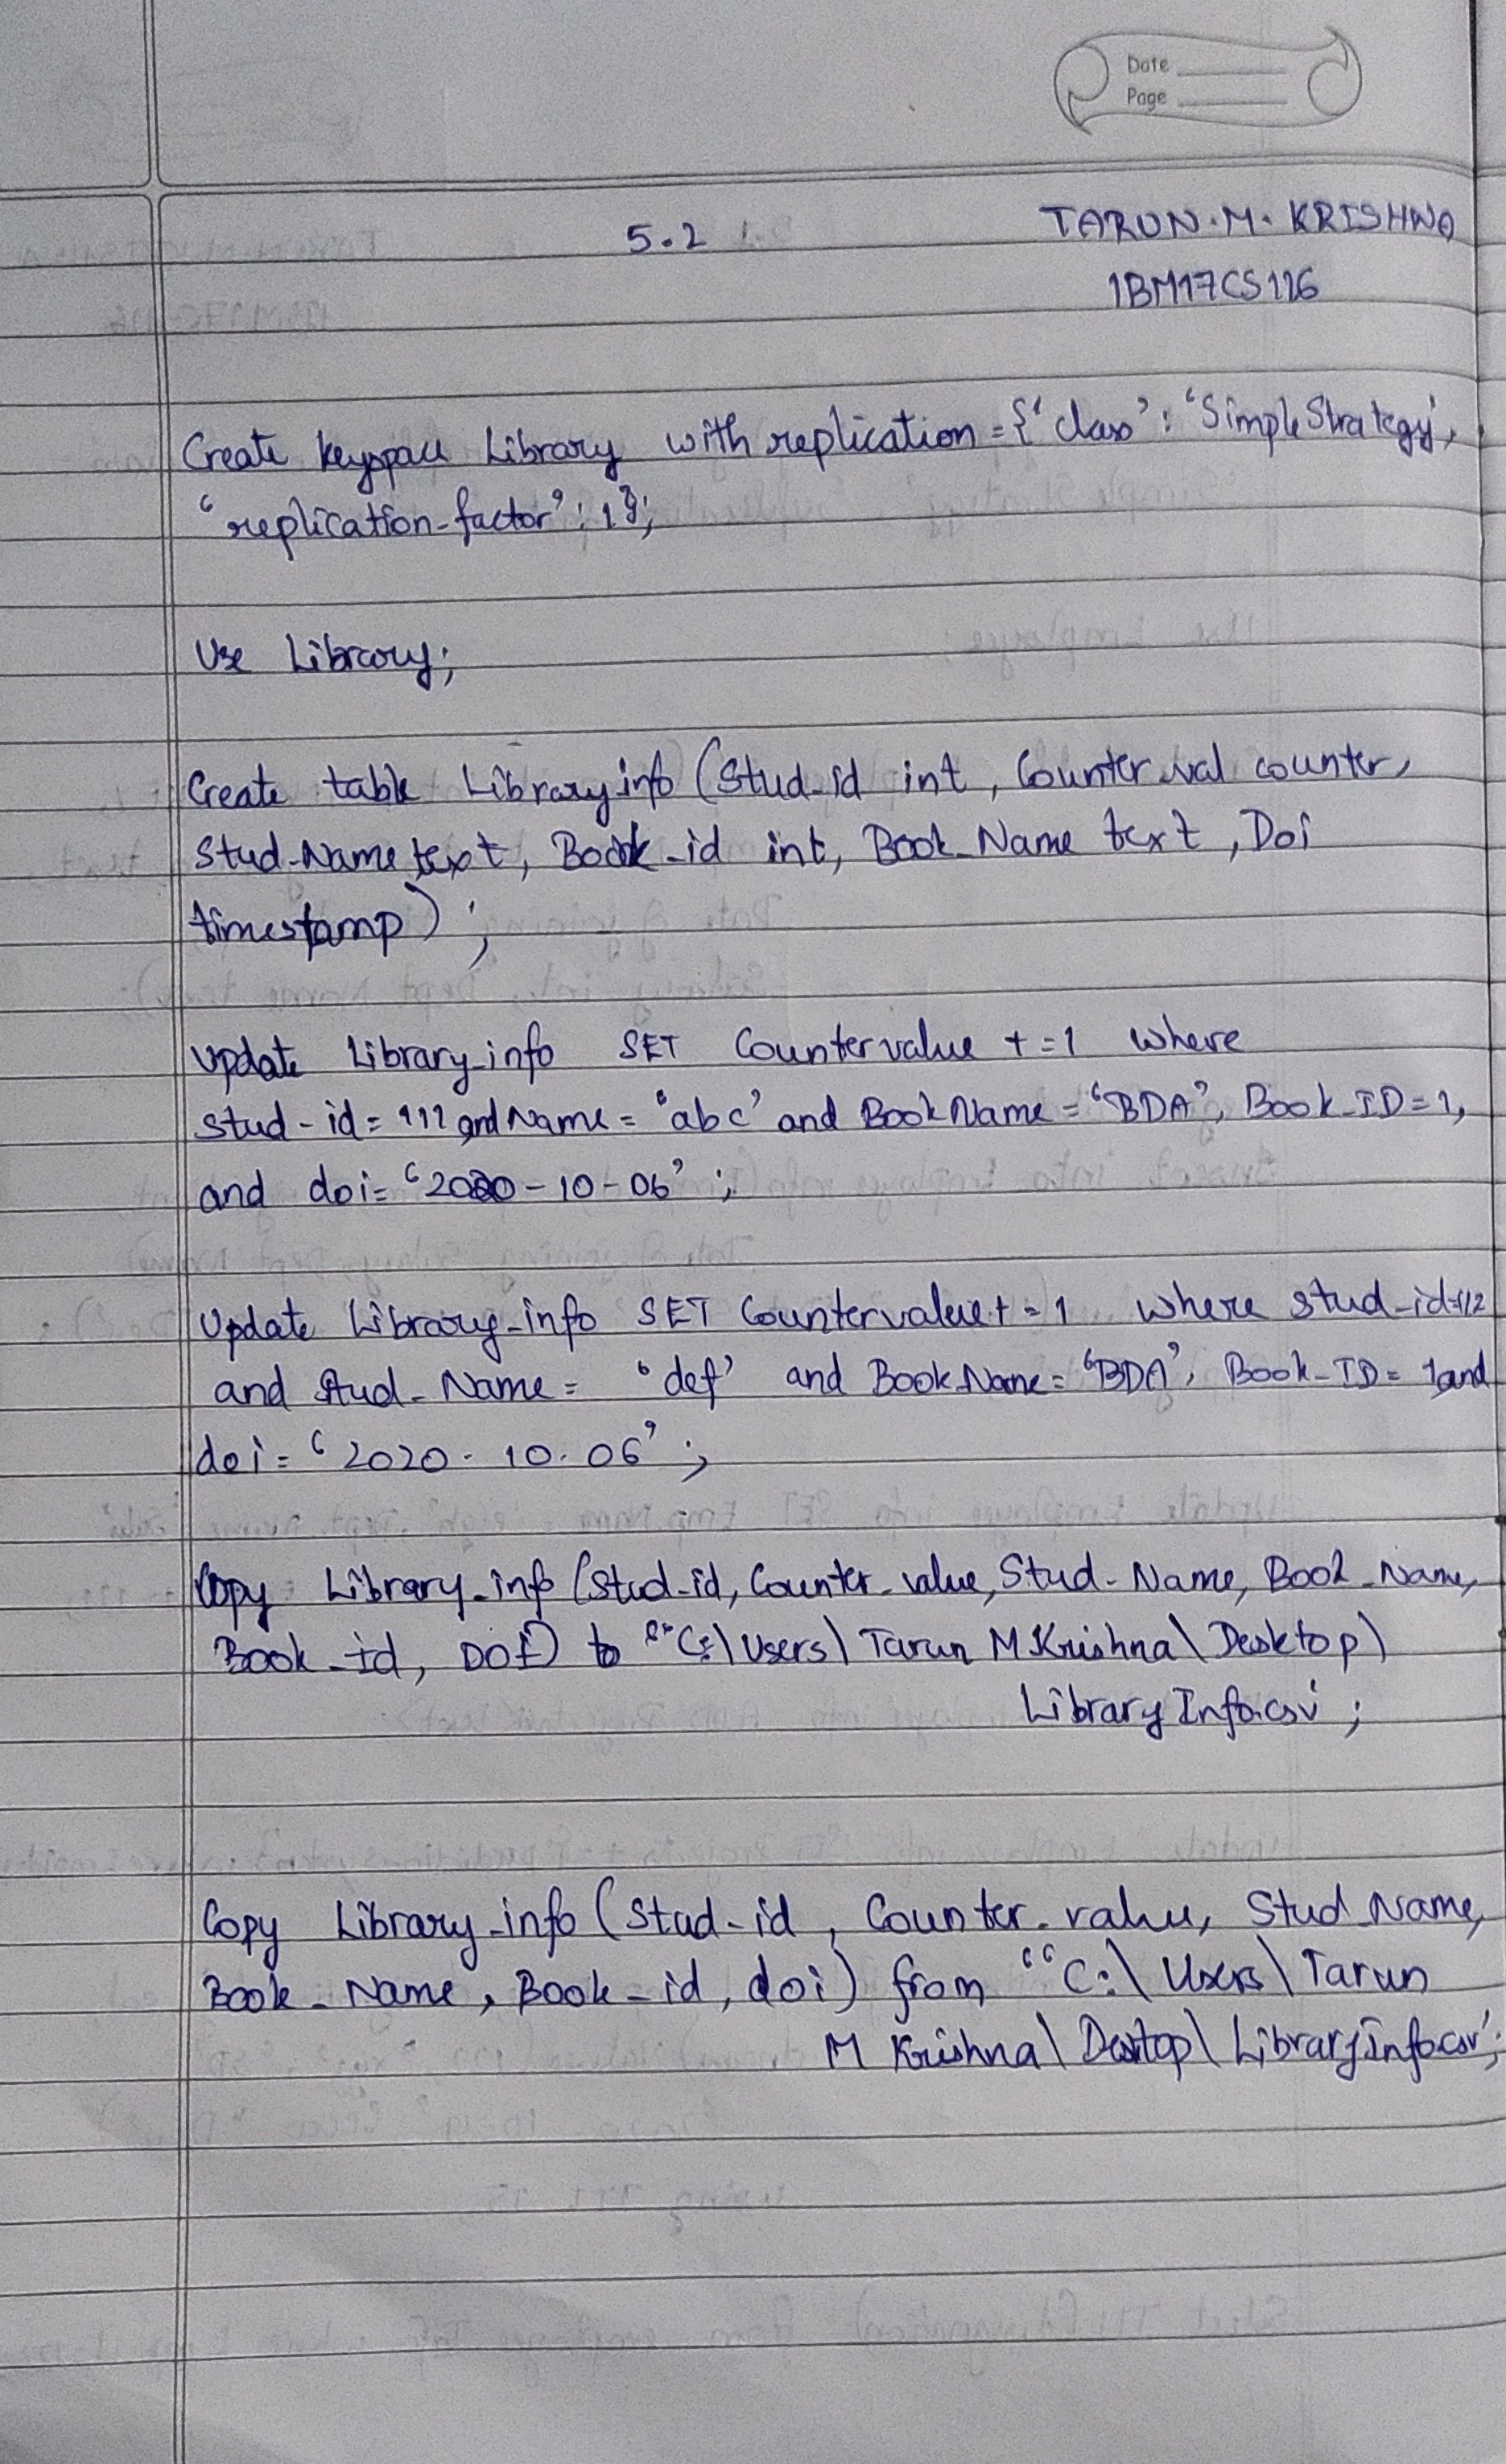 Date
Page
5.2 TARUN.M. KRISHNA
1BM17CS116
Create keyspace Library with replication = {'class' : 'SimpleStrategy',
'replication-factor' : 1};
Use Library;
Create table Library_info (Stud-id int, Counter_val counter,
Stud-Name text, Book-id int, Book-Name text, Doi
timestamp) ;
Update Library-info SET Countervalue +=1 where
stud-id = 111 and Name = 'abc' and BookName = 'BDA', Book-ID=1,
and doi= '2020-10-06' ;
Update Library-info SET Countervalue+=1 where stud-id=112
and Stud-Name = 'def' and Book-Name = 'BDA', Book-ID= 1and
doi= '2020-10-06' ;
Copy Library-info (Stud-id, Counter-value, Stud-Name, Book-Name,
Book-id, DOI) to "C:\Users\ Tarun M Krishna\ Desktop\
LibraryInfo.csv' ;
Copy Library-info (Stud-id, Counter-value, Stud_Name,
Book-Name, Book-id, doi) from "C:\ Users\ Tarun
M Krishna\ Desktop\ LibraryInfo.csv';